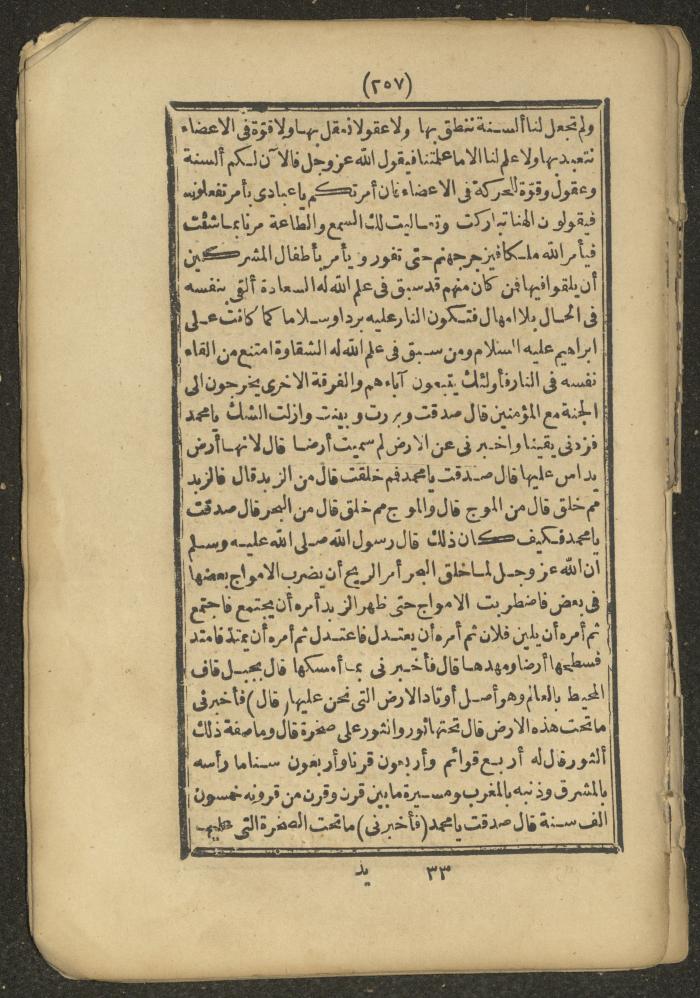 (٢٥٧)
ولم تجعل لنا ألسنة ننطق بها ولا عقولا نعقل بها ولا قوّة فى الاعضاء
نتعبد بها ولا علم لنا الا ما علمتنا فيقول الله عز وجل فالآن لكم ألسنة
وعقول وقوّة للحركة فى الاعضاء فان أمرتكم يا عبادى بأمر تفعلونه
فيقولون الهنا تباركت وتعاليت لك السمع والطاعة مرنا بما شئت
فيأمر الله ملكا فيزجر جهنم حتى تفور ويأمر بأطفال المشركين
أن يلقوا فيها فمن كان منهم قد سبق فى علم الله له السعادة ألقى بنفسه
فى الحال بلا امهال فتكون النار عليه بردا وسلاما كما كانت على
ابراهيم عليه السلام ومن سبق فى علم الله له الشقاوة امتنع من القاء
نفسه فى النار فأولئك يتبعون آباءهم والفرقة الاخرى يخرجون الى
الجنة مع المؤمنين قال صدقت وبررت وبينت وازلت الشك يا محمد
فزدنى يقينا واخبرنى عن الارض لم سميت أرضا قال لانها أرض
يداس عليها قال صدقت يا محمد فمم خلقت قال من الزبد قال فالزبد
مم خلق قال من الموج قال والموج مم خلق قال من البحر قال صدقت
يا محمد فكيف كان ذلك قال رسول الله صلى الله عليه وسلم
ان الله عز وجل لما خلق البحر أمر الريح أن يضرب الامواج بعضها
فى بعض فاضطربت الامواج حتى ظهر الزبد أمره أن يجتمع فاجتمع
ثم أمره أن يلين فلان ثم أمره أن يعتدل فاعتدل ثم أمره أن يمتد فامتد
فسطحها أرضا ومهدها قال فأخبرنى بما أمسكها قال بجبل قاف
المحيط بالعالم وهو أصل أوتاد الارض التى نحن عليها (قال) فأخبرنى
ما تحت هذه الارض قال تحتها ثور والثور على صخرة قال وما صفة ذلك
الثور قال له أربع قوائم وأربعون قرنا وأربعون سناما رأسه
بالمشرق وذنبه بالمغرب ومسيرة ما بين قرن وقرن من قرونه خمسون
الف سنة قال صدقت يا محمد (فأخبرنى) ما تحت الصخرة التى عليها
٣٣ يد